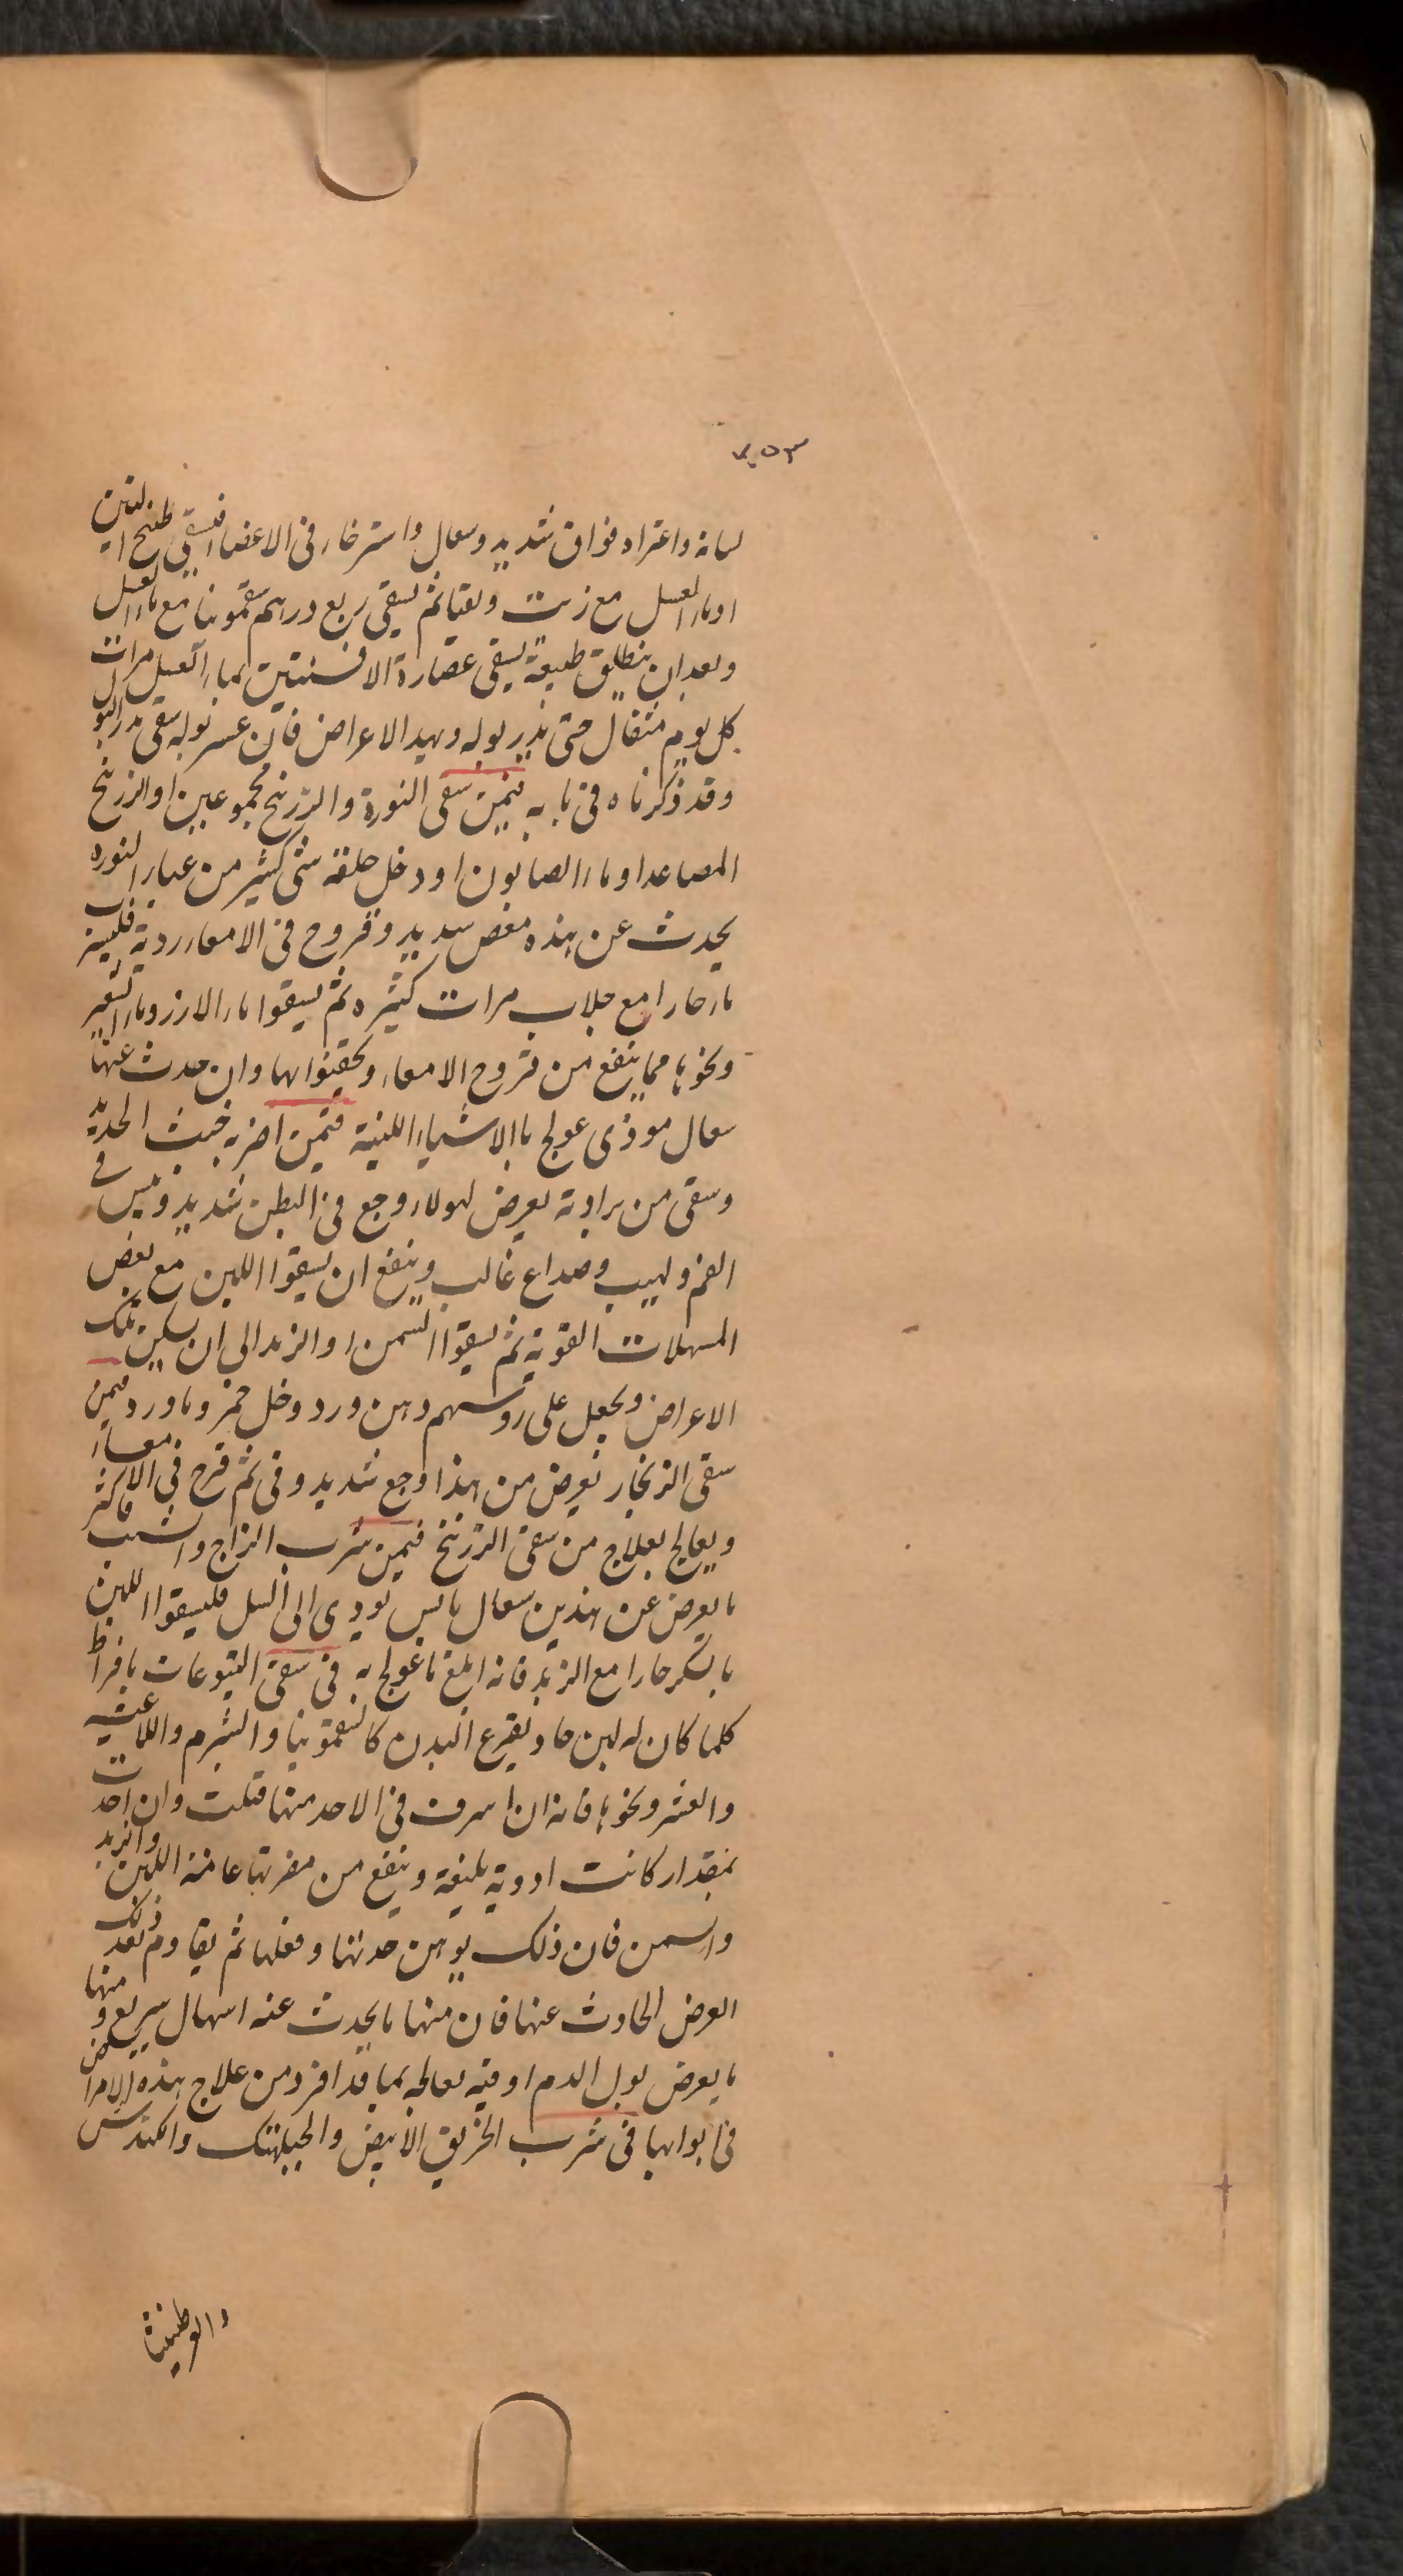 ٧٥٣
لسانه واعتراه فواق شديد وسعال واسترخاء فى الاعضاء فليسقى طبيخ التين
او ماء العسل مع زيت ويقيا ثم يسقى ربع درهم سقمونيا مع ماء العسل
وبعد ان ينطلق طبيعة يسقى عصارة الافسنتين بماء العسل مرات
كل يوم مثقال حتى يدر بوله ويهدا الاعراض فان عسر بوله سقى مدر البول
وقد ذكرناه فى بابه فيمن سقى النورة والزرنيخ مجموعين او الزرنيخ
المصاعد او ماء الصابون او دخل حلقه شى كثير من غبار النوره
يحدث عن هذه مغص شديد وقروح فى الامعاء ردية فليسقى
ماء حارا مع جلاب مرات كثيره ثم يسقوا ماء الارز وماء الشعير
ونحوها مما ينفع من قروح الامعاء ويحقنوا بها وان حدث عنها
سعال موذى عولج بالاشياء اللينة فيمن اضر به خبث الحديد
وسقى من برادته يعرض لهولاء وجع فى البطن شديد ويبس فى
الفم ولهيب وصداع غالب وينفع ان يسقوا اللبن مع بعض
المسهلات القوية ثم يسقوا السمن او الزبد الى ان يسكن تلك
الاعراض ويجعل على روسهم دهن ورد وخل خمر وماورد فيمن
سقى الزنجار يعرض من هذا وجع شديد وقى ثم قرح فى الامعاء
ويعالج بعلاج من سقى الزرنيخ فيمن شرب الزاج والشب فاكثر
ما يعرض عن هذين سعال يابس يودى الى السل فليسقوا اللبن
بالسكر حارا مع الزبد فانه ابلغ ما عولج به فى سقى اليتوعات بافراط
كلما كان له لبن حاد يقرع البدن كالسقمونيا والشبرم واللاعيه
والعشر ونحوها فانه ان اسرف فى الاحد منها قتلت وان اخذت
بمقدار كانت ادوية بليغة وينفع من مضرتها عامة اللبن والزبد
والسمن فان ذلك يوهن حدتها وفعلها ثم يقاوم بعد ذلك
العرض الحادث عنها فان منها ما يحدث عنه اسهال سريع ومنها
ما يعرض بول الدم او قيه يعالجه بما قد افرد من علاج هذه الامراض
فى ابوابها فى شرب الخربق الابيض والجبلهنك والكندس
والوطنيثا